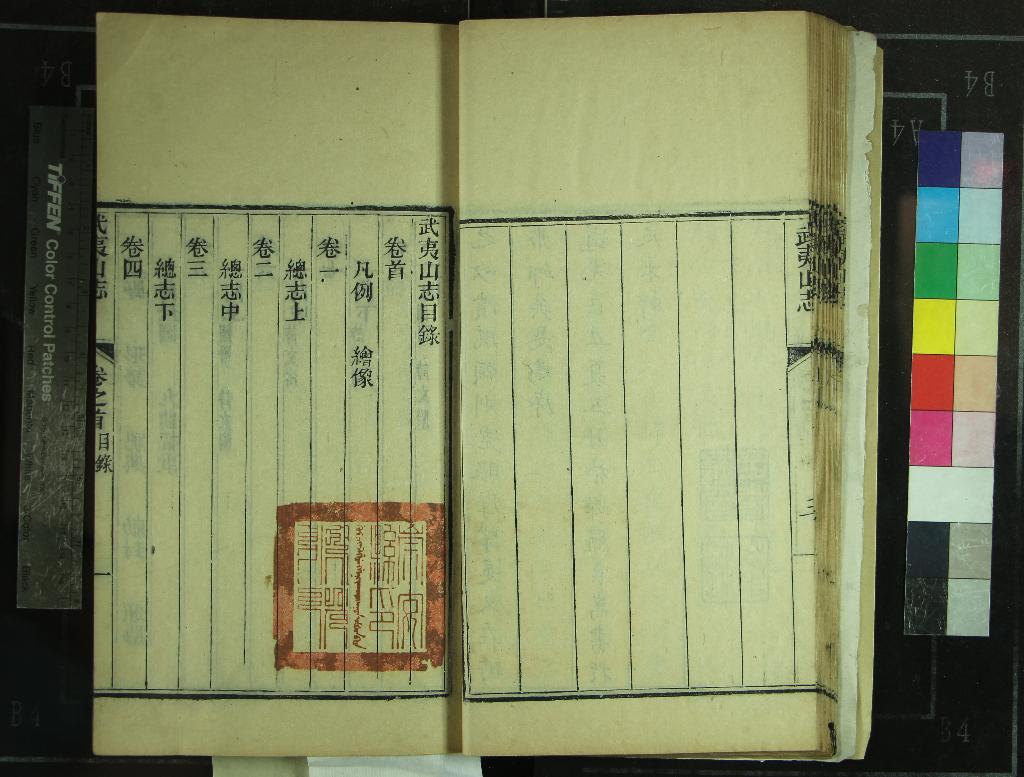 武夷山志
三
武夷山志目錄
卷首
凡例 繪像
卷一
總志上
卷二
總志中
卷三
總志下
卷四
武夷山志 卷之首 目錄 一
TIFFEN Color Control Patches
B4
B4
A4
B4
B4